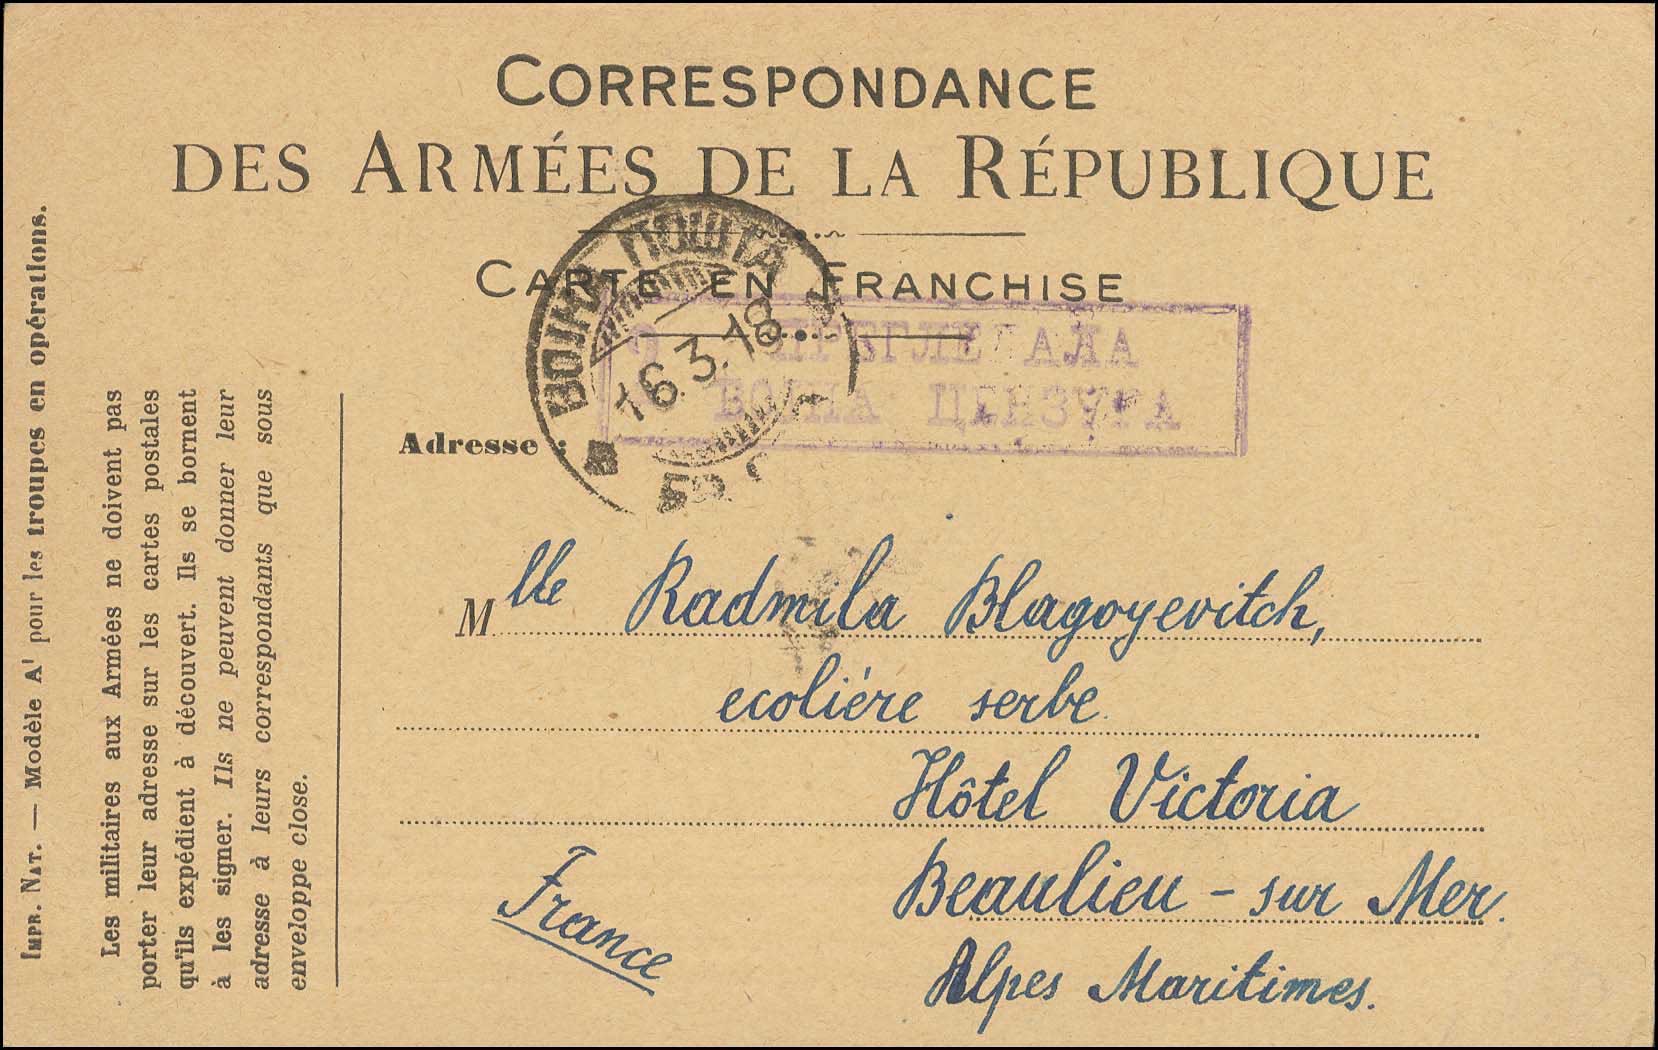 CORRESPONDANCE
DES ARMÉES DE LA RÉPUBLIQUE
CARTE EN FRANCHISE
ВОЈНА ПОШТА
16.3.18
ПРЕГЛЕДАЛА
ВОЈНА ЦЕНЗУРА
Adresse :
Mlle Radmila Blagoyevitch,
ecoliére serbe.
Hôtel Victoria
Beaulieu - sur Mer.
Alpes Maritimes.
France
IMPR. NAT. — Modèle A¹ pour les troupes en opérations.
Les militaires aux Armées ne doivent pas
porter leur adresse sur les cartes postales
qu'ils expédient à découvert. Ils se bornent
à les signer. Ils ne peuvent donner leur
adresse à leurs correspondants que sous
enveloppe close.